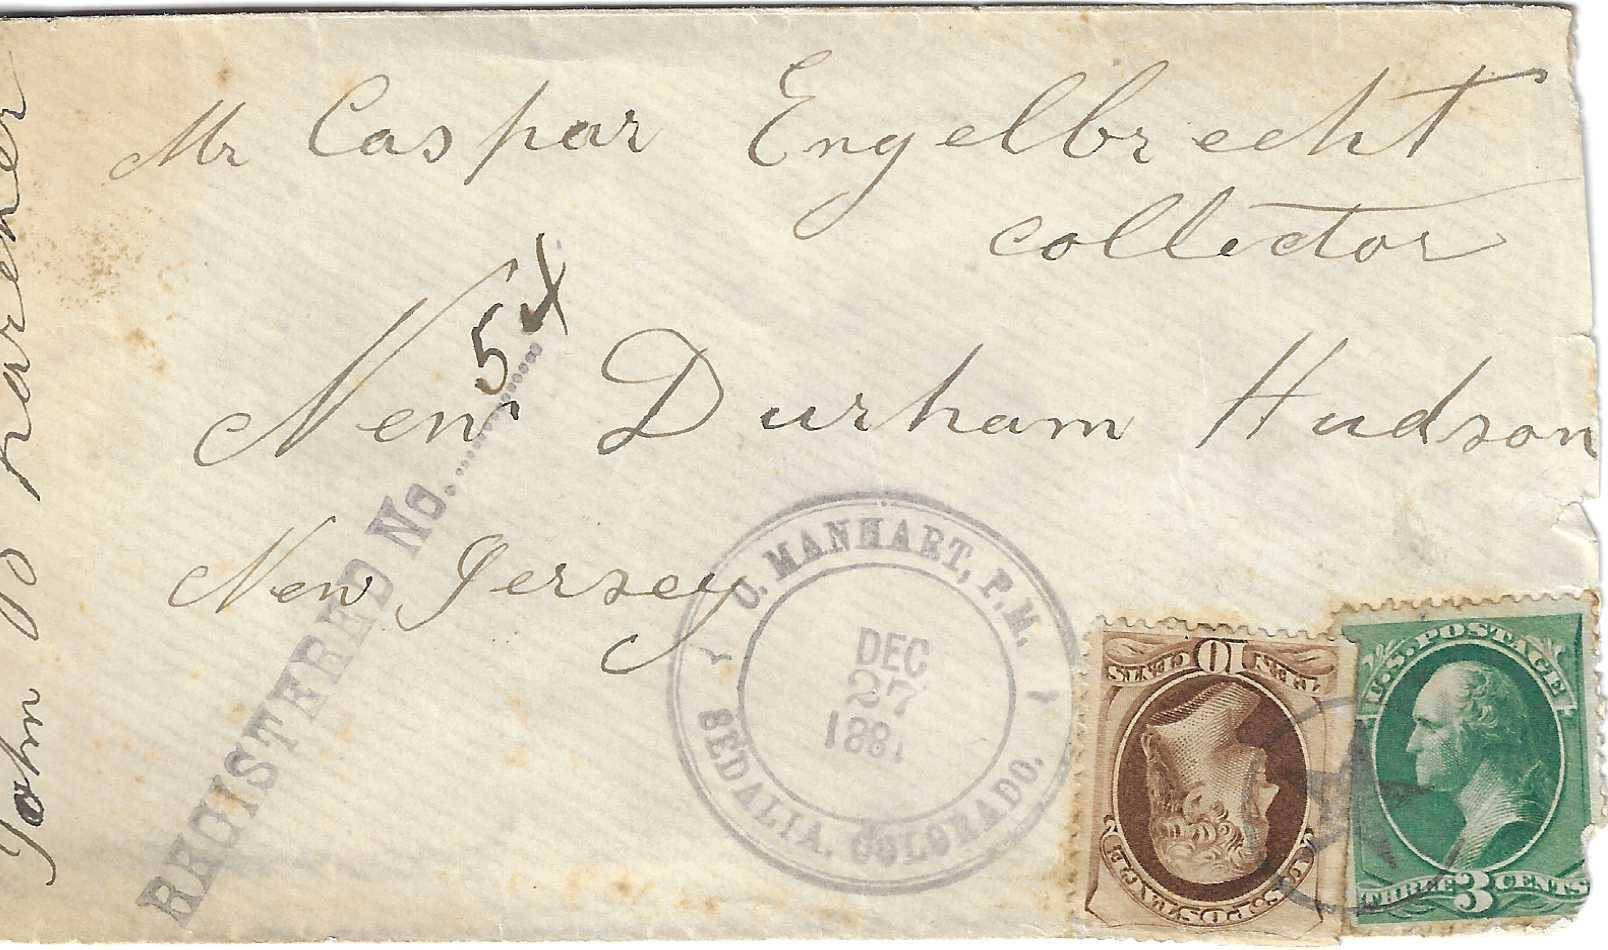 Mr Caspar Engelbrecht
collector
New Durham Hudson
New Jersey
REGISTERED No.
54
John B
U. MANHART, P.M.
DEC
27
1881
SEDALIA, COLORADO.
TEN 10 CENTS
U.S. POSTAGE
U.S. POSTAGE
THREE 3 CENTS